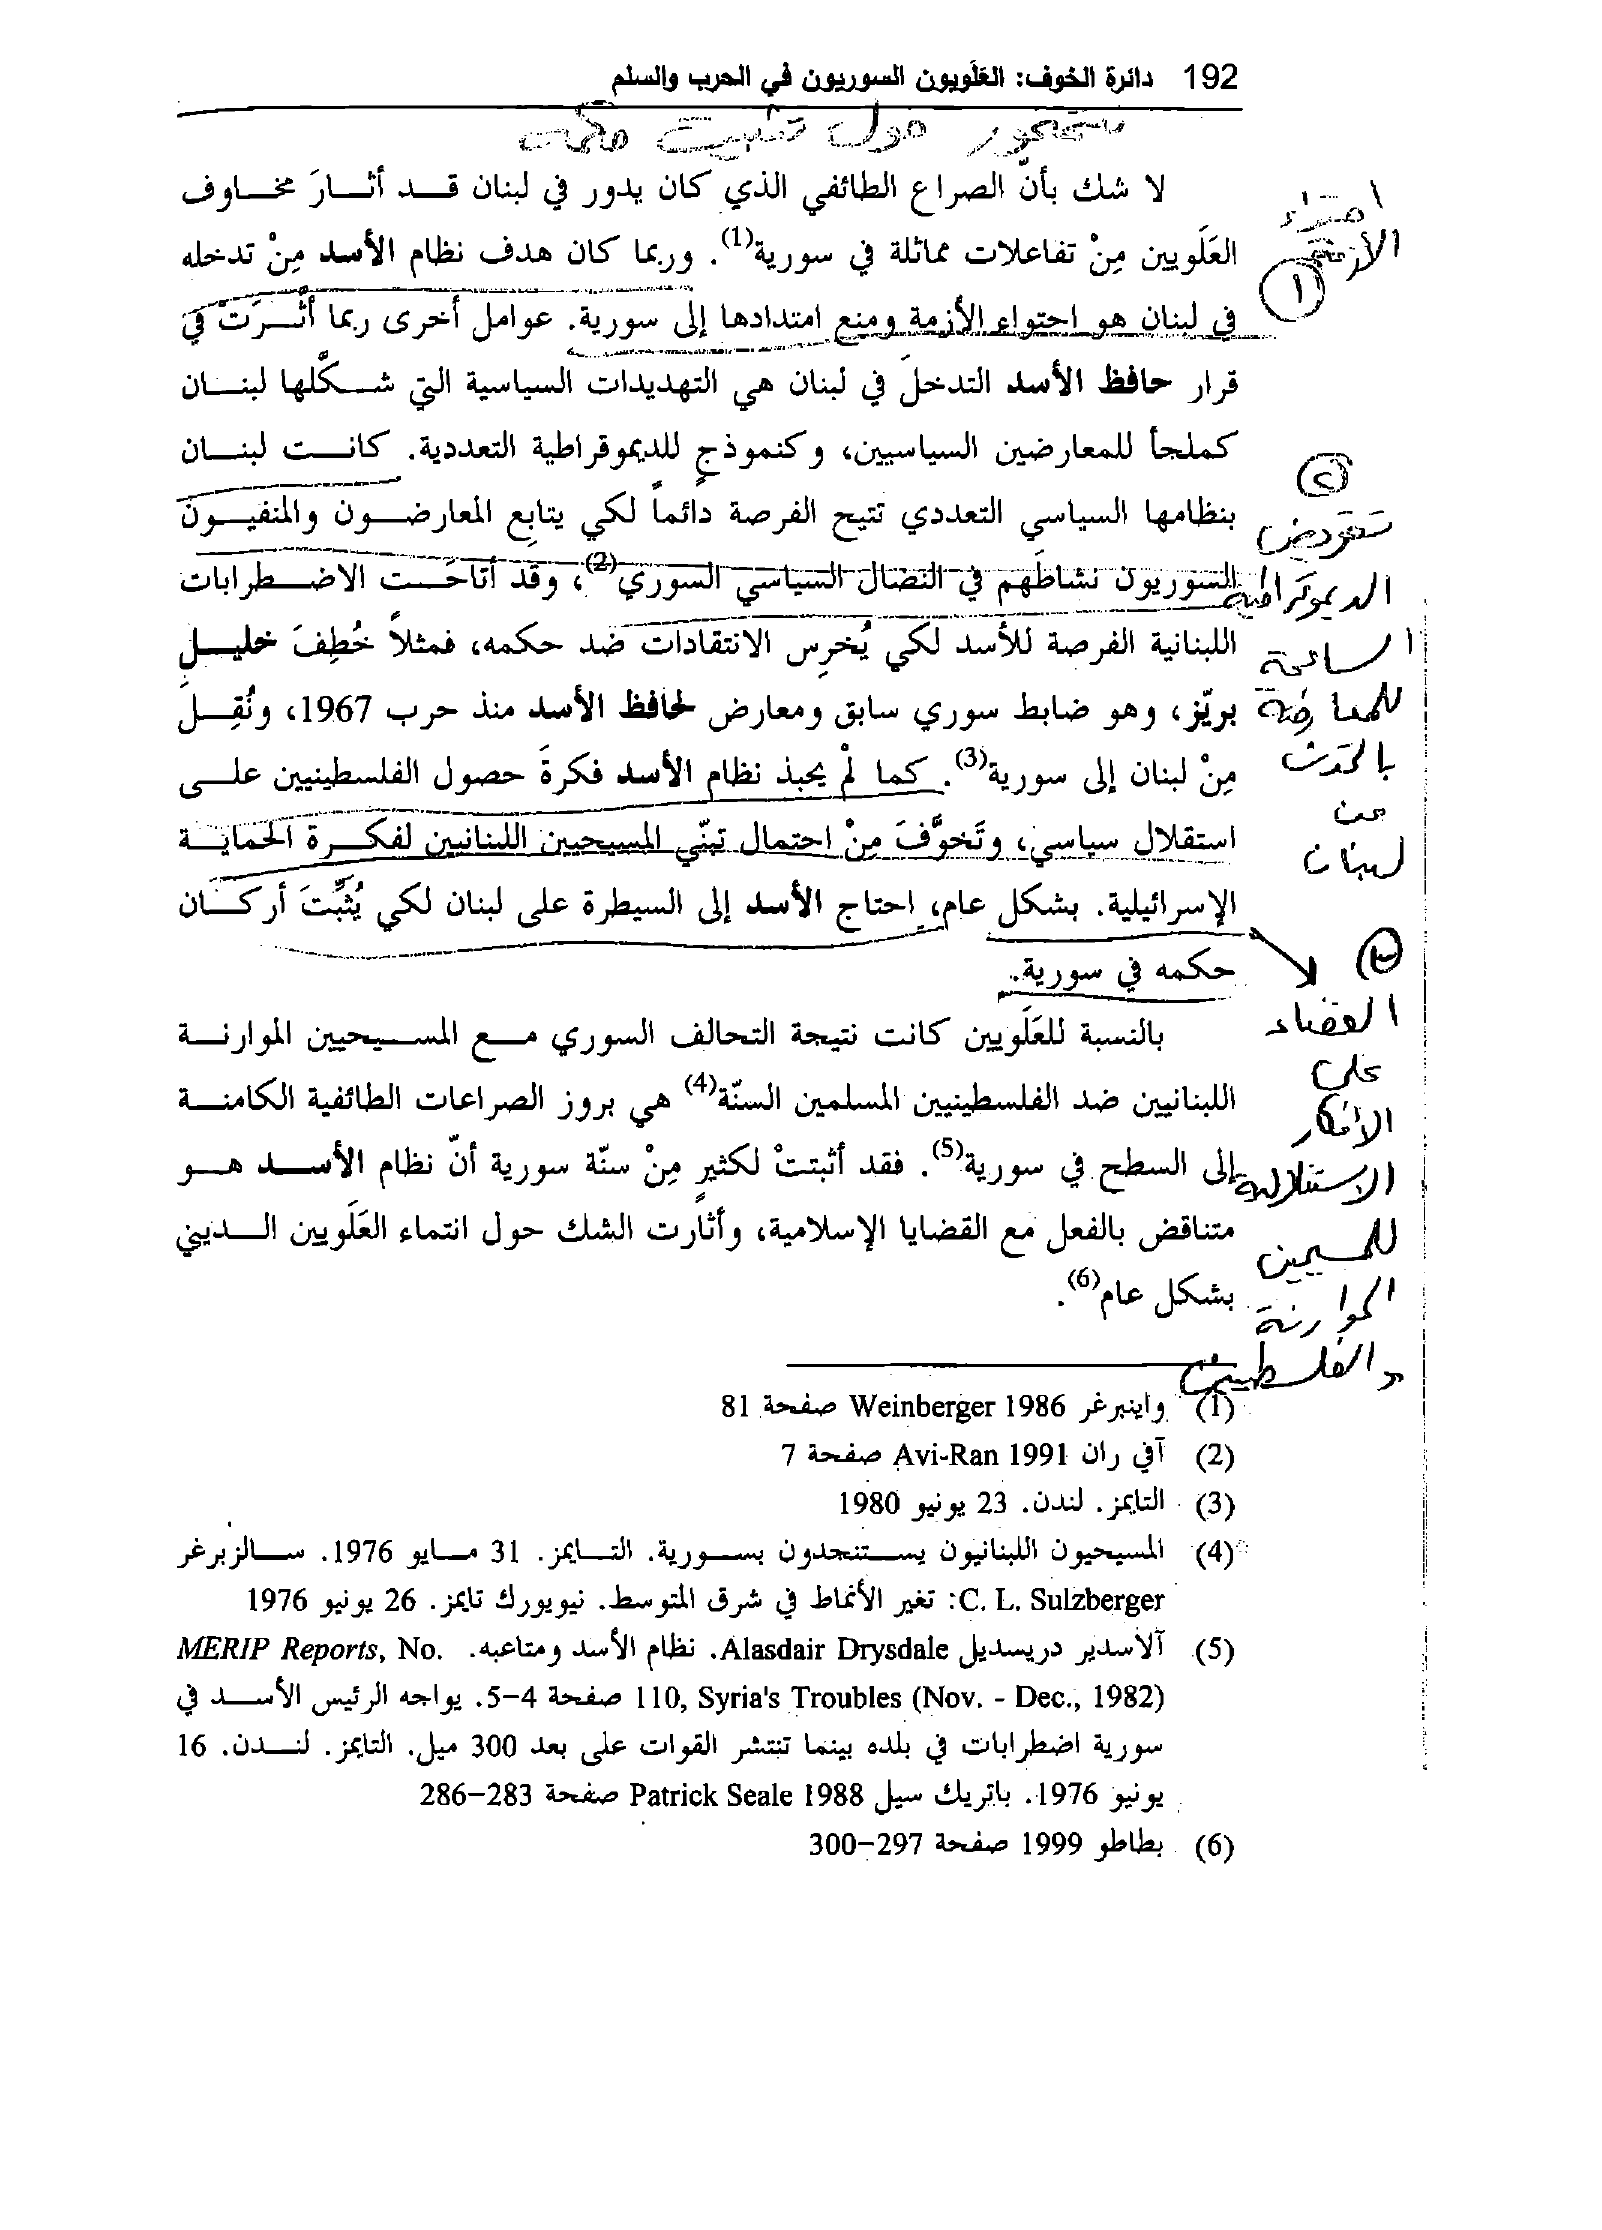 192 دائرة الخوف: العَلَويون السوريون في الحرب والسلم
تتمحور حول تثبيت حكمه
لا شك بأنّ الصراع الطائفي الذي كان يدور في لبنان قــد أثــارَ مخــاوف
العَلَويين مِنْ تفاعلات مماثلة في سورية(1). وربما كان هدف نظام الأسد مِنْ تدخله
في لبنان هو احتواء الأزمة ومنع امتدادها إلى سورية. عوامل أخرى ربما أثّــرَتْ في
قرار حافظ الأسد التدخلَ في لبنان هي التهديدات السياسية التي شــكّلها لبنــان
كملجأ للمعارضين السياسيين، وكنموذجٍ للديموقراطية التعددية. كانــت لبنــان
بنظامها السياسي التعددي تتيح الفرصة دائماً لكي يتابِع المعارضــون والمنفيــون
السوريون نشاطَهم في النضال السياسي السوري(2)، وقد أتاحَــت الاضــطرابات
اللبنانية الفرصة للأسد لكي يُخرِس الانتقادات ضد حكمه، فمثلاً خُطِفَ خليــل
بريّز، وهو ضابط سوري سابق ومعارض لحافظ الأسد منذ حرب 1967، ونُقِــل
مِنْ لبنان إلى سورية(3). كما لمْ يحبذ نظام الأسد فكرةَ حصول الفلسطينيين علــى
استقلال سياسي، وتَخوَّفَ مِنْ احتمال تبنّي المسيحيين اللبنانيين لفكــرة الحمايــة
الإسرائيلية. بشكل عام، احتاج الأسد إلى السيطرة على لبنان لكي يُثبِّتَ أركــان
حكمه في سورية.
بالنسبة للعَلَويين كانت نتيجة التحالف السوري مــع المســيحيين الموارنــة
اللبنانيين ضد الفلسطينيين المسلمين السنّة(4) هي بروز الصراعات الطائفية الكامنــة
إلى السطح في سورية(5). فقد أثبتتْ لكثيرٍ مِنْ سنّة سورية أنّ نظام الأســد هــو
متناقض بالفعل مع القضايا الإسلامية، وأثارت الشك حول انتماء العَلَويين الــديني
بشكل عام(6).
الأزمة
١
٢
تقويض
الديموقراطية
السانحة
للمعارضة
بالحدث
عن
لبنان
٣
القضاء
على
الأفكار
الاستقلالية
للمسيحيين
الموارنة
والفلسطينيين
(1) واينبرغر Weinberger 1986 صفحة 81
(2) آفي ران Avi-Ran 1991 صفحة 7
(3) التايمز. لندن. 23 يونيو 1980
(4) المسيحيون اللبنانيون يســتنجدون بســورية. التــايمز. 31 مــايو 1976. ســالزبرغر
C. L. Sulzberger: تغير الأنماط في شرق المتوسط. نيويورك تايمز. 26 يونيو 1976
(5) آلاسدير دريسديل Alasdair Drysdale. نظام الأسد ومتاعبه. MERIP Reports, No.
110, Syria's Troubles (Nov. - Dec., 1982) صفحة 4–5. يواجه الرئيس الأســد في
سورية اضطرابات في بلده بينما تنتشر القوات على بعد 300 ميل. التايمز. لنــدن. 16
يونيو 1976. باتريك سيل Patrick Seale 1988 صفحة 283–286
(6) بطاطو 1999 صفحة 297–300